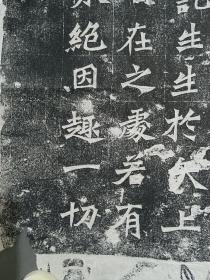 託生生於天上
在之處若有
絕因趣一切